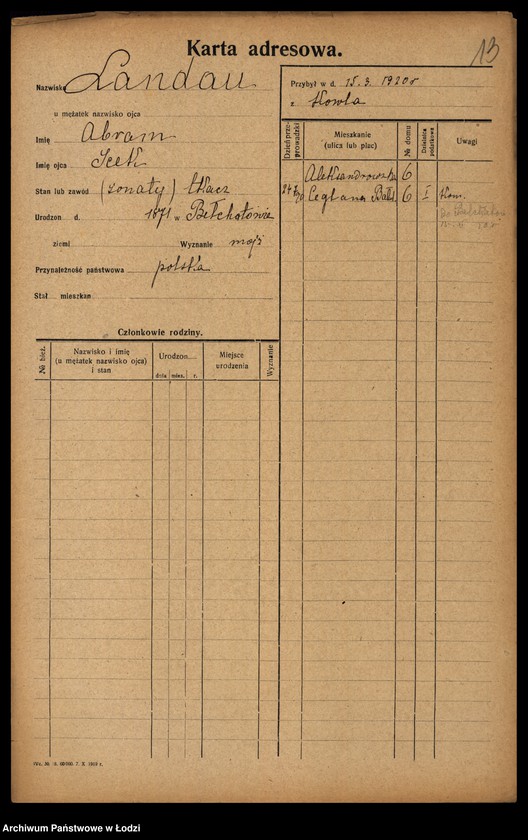 13
Karta adresowa.
Nazwisko Landau
u mężatek nazwisko ojca
Imię Abram
Imię ojca Icek
Stan lub zawód (żonaty) tkacz
Urodzon d. 1871 w Bełchatowie
ziemi Wyznanie mojż
Przynależność państwowa polska
Stał mieszkan
Członkowie rodziny.
№ bież. Nazwisko i imię (u mężatek nazwisko ojca) i stan Urodzon dnia mies. r. Miejsce urodzenia Wyznanie
Przybył w d. 15.3. 1920 r
z Kowla
Dzień przeprowadzki Mieszkanie (ulica lub plac) № domu Dzielnica Uwagi
Aleksandrowska 6
Ceglana Bałt. 6 I
Archiwum Państwowe w Łodzi